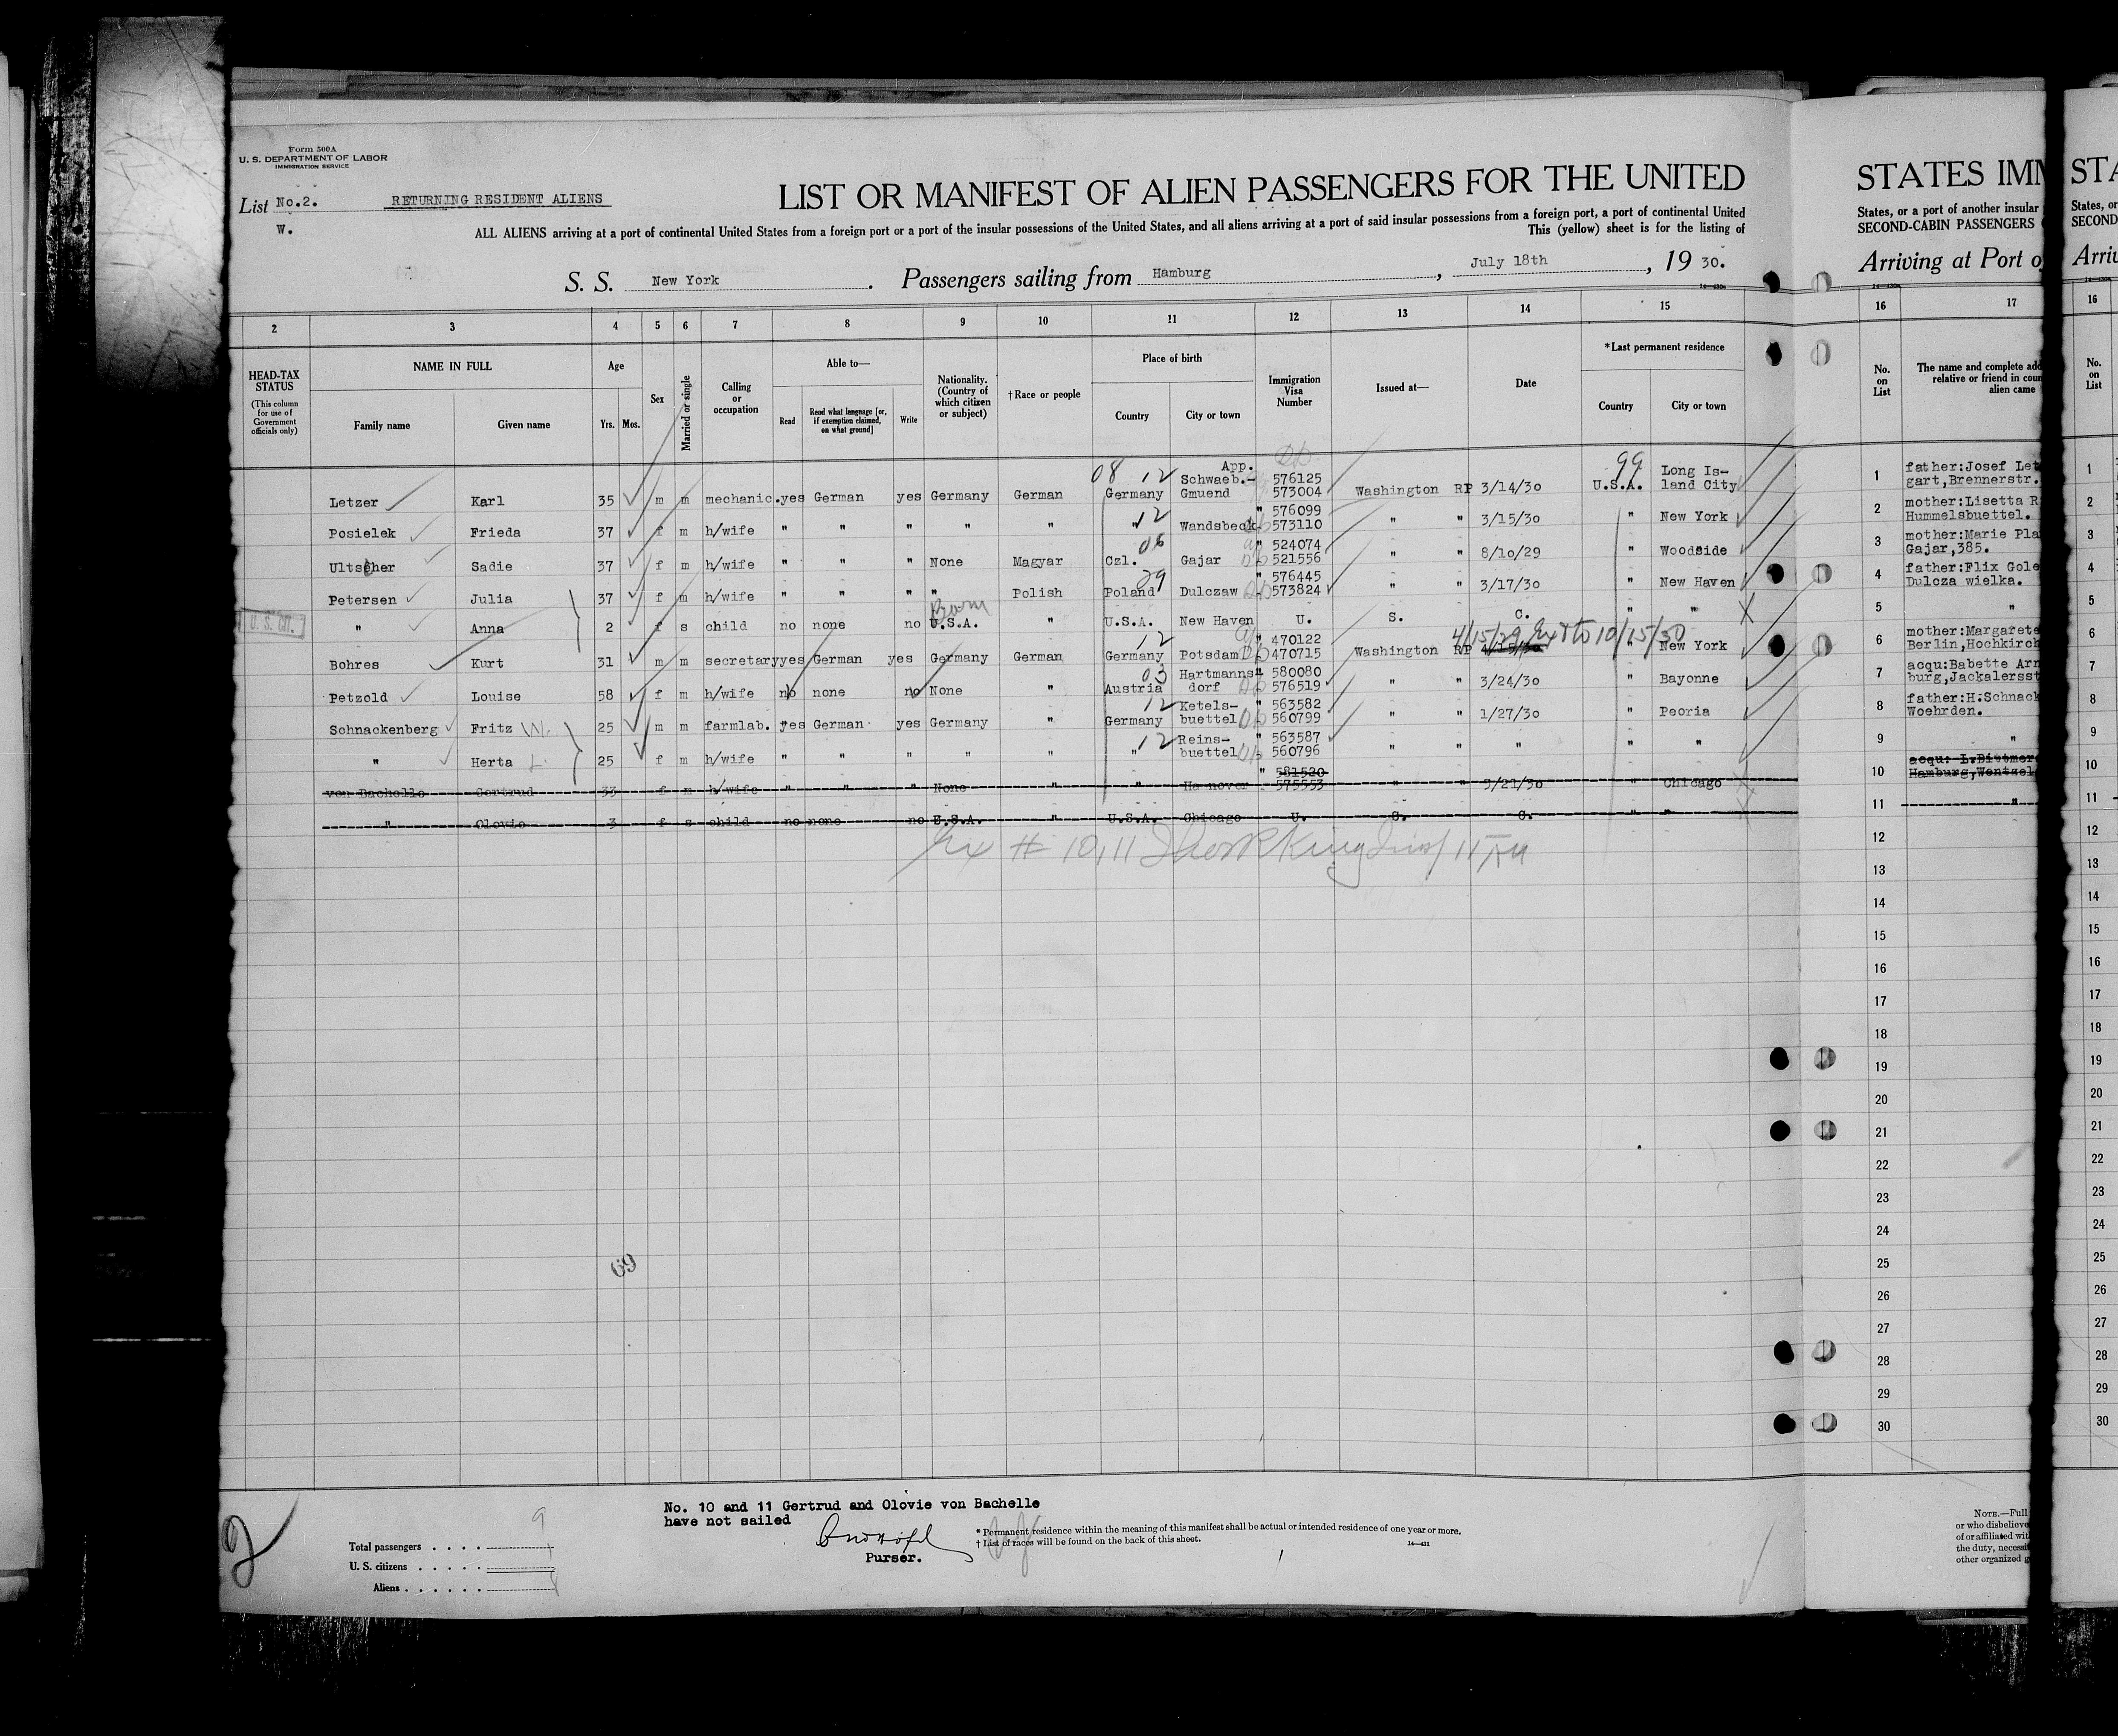 Form 500A
U. S. DEPARTMENT OF LABOR
IMMIGRATION SERVICE
List No.2.
W.
RETURNING RESIDENT ALIENS
LIST OR MANIFEST OF ALIEN PASSENGERS FOR THE UNITED
ALL ALIENS arriving at a port of continental United States from a foreign port or a port of the insular possessions of the United States, and all aliens arriving at a port of said insular possessions from a foreign port, a port of continental United
This (yellow) sheet is for the listing of
S. S. New York. Passengers sailing from Hamburg, July 18th, 19 30.
2 3 4 5 6 7 8 9 10 11 12 13 14 15
HEAD-TAX STATUS (This column for use of Government officials only)
NAME IN FULL Family name Given name
Age Yrs. Mos.
Sex
Married or single
Calling or occupation
Able to— Read Read what language [or, if exemption claimed, on what ground] Write
Nationality. (Country of which citizen or subject)
† Race or people
Place of birth Country City or town
Immigration Visa Number
Issued at—
Date
*Last permanent residence Country City or town
08 12 App. 99
Schwaeb.- 576125 Long Is-
Letzer Karl 35 m m mechanic. yes German yes Germany German Germany Gmuend 573004 Washington RP 3/14/30 U.S.A. land City
12 " 576099
Posielek Frieda 37 f m h/wife " " " " " " Wandsbeck 573110 " " 3/15/30 " New York
06 " 524074
Ultscher Sadie 37 f m h/wife " " " None Magyar Czl. Gajar 521556 " " 8/10/29 " Woodside
29 " 576445
Petersen Julia 37 f m h/wife " " " " Polish Poland Dulczaw 573824 " " 3/17/30 " New Haven
Born
U. S. CIT. " Anna 2 f s child no none no U.S.A. " U.S.A. New Haven U. S. C. " "
12 " 470122 4/15/29 Ext to 10/15/30
Bohres Kurt 31 m m secretary yes German yes Germany German Germany Potsdam 470715 Washington RP 4/15/30 " New York
03 Hartmanns- " 580080
Petzold Louise 58 f m h/wife no none no None " Austria dorf 576519 " " 3/24/30 " Bayonne
12 Ketels- " 563582
Schnackenberg Fritz W. 25 m m farmlab. yes German yes Germany " Germany buettel 560799 " " 1/27/30 " Peoria
12 Reins- " 563587
" Herta L. 25 f m h/wife " " " " " " buettel 560796 " " " " "
" 581520
von Bachelle Gertrud 33 f m h/wife " " " None " " Hannover 575553 " " 3/21/30 " Chicago
" Olovie 3 f s child no none no U.S.A. " U.S.A. Chicago U. S. C. " "
# 10, 11
69
No. 10 and 11 Gertrud and Olovie von Bachelle
have not sailed
Purser.
2
Total passengers . . . . 9
U. S. citizens . . . . .
Aliens . . . . . .
* Permanent residence within the meaning of this manifest shall be actual or intended residence of one year or more.
† List of races will be found on the back of this sheet.
14—431
STATES IMM
States, or a port of another insular
SECOND-CABIN PASSENGERS
Arriving at Port o
16 17
No. on List
The name and complete add
relative or friend in coun
alien came
1 father:Josef Let
gart,Brennerstr.
2 mother:Lisetta R
Hummelsbuettel.
3 mother:Marie Pla
Gajar,385.
4 father:Flix Gole
Dulcza wielka.
5 "
6 mother:Margarete
Berlin,Hochkirch
7 acqu:Babette Arn
burg,Jackalersst
8 father:H.Schnack
Woehrden.
9 "
10 acqu: L.Dittmer
Hamburg,Wentzel
11 "
12
13
14
15
16
17
18
19
20
21
22
23
24
25
26
27
28
29
30
NOTE.—Full
or who disbelieve
of or affiliated wit
the duty, necessi
other organized g
STA
States, or
SECOND
Arriv
16
No. on List
1
2
3
4
5
6
7
8
9
10
11
12
13
14
15
16
17
18
19
20
21
22
23
24
25
26
27
28
29
30